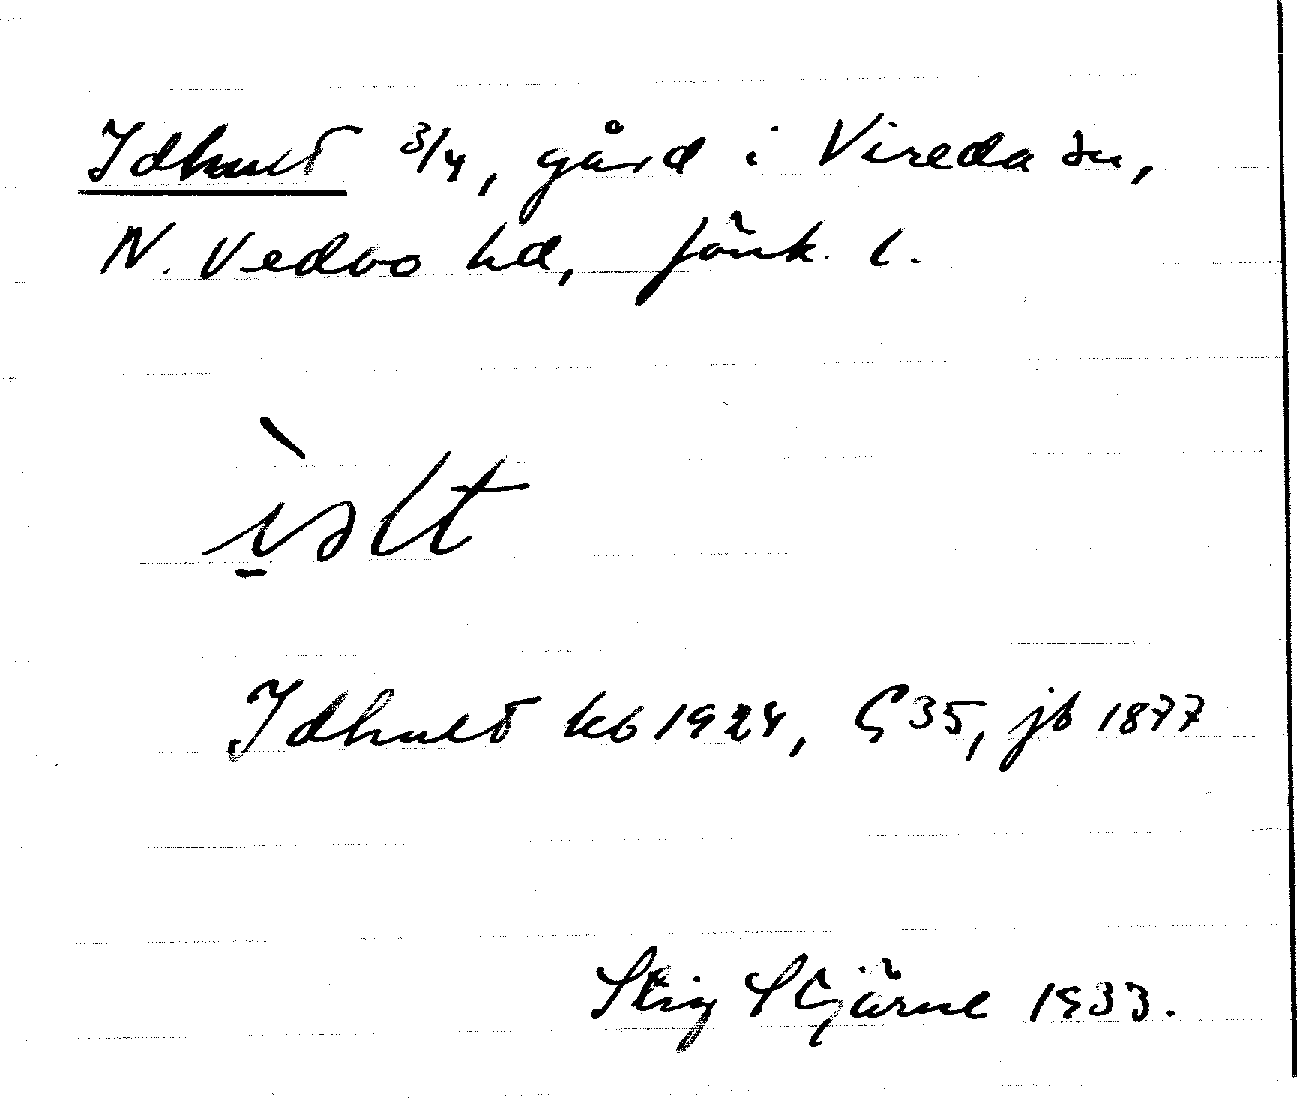 Idhult 3/4, gård i Vireda sn,
N. Vedbo hd, Jönk. l.
ìslt
Idhult kb 1924, § 35, jb 1877
Stig Stjärne 1933.